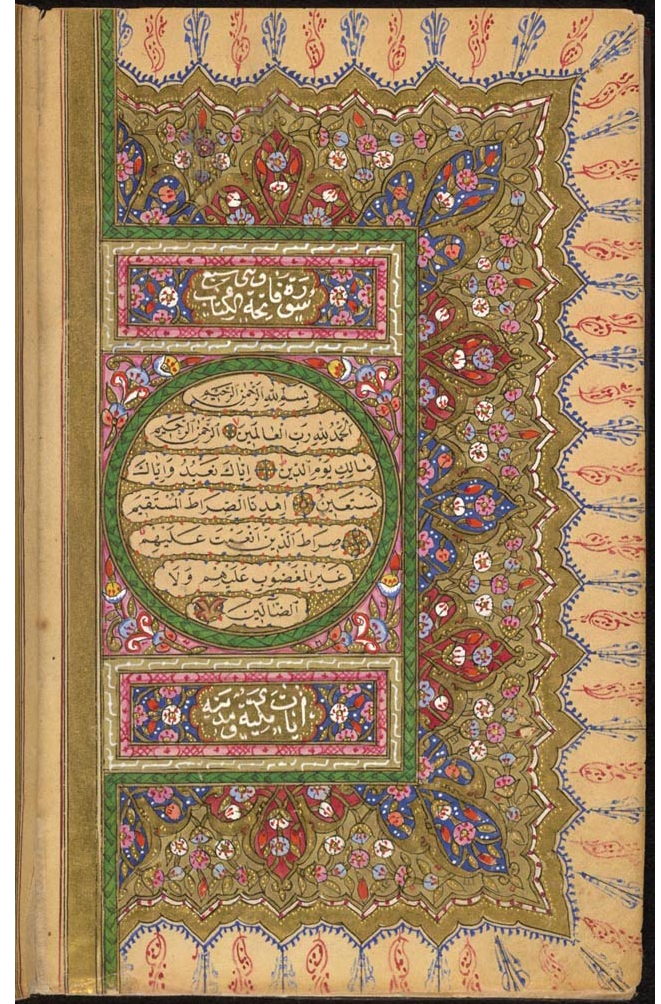 سورة فاتحة الكتاب وهي سبع
بسم الله الرحمن الرحيم
الحمد لله رب العالمين الرحمن الرحيم
مالك يوم الدين اياك نعبد واياك
نستعين اهدنا الصراط المستقيم
صراط الذين انعمت عليهم
غير المغضوب عليهم ولا
الضالين
آيات مكية ومدنية